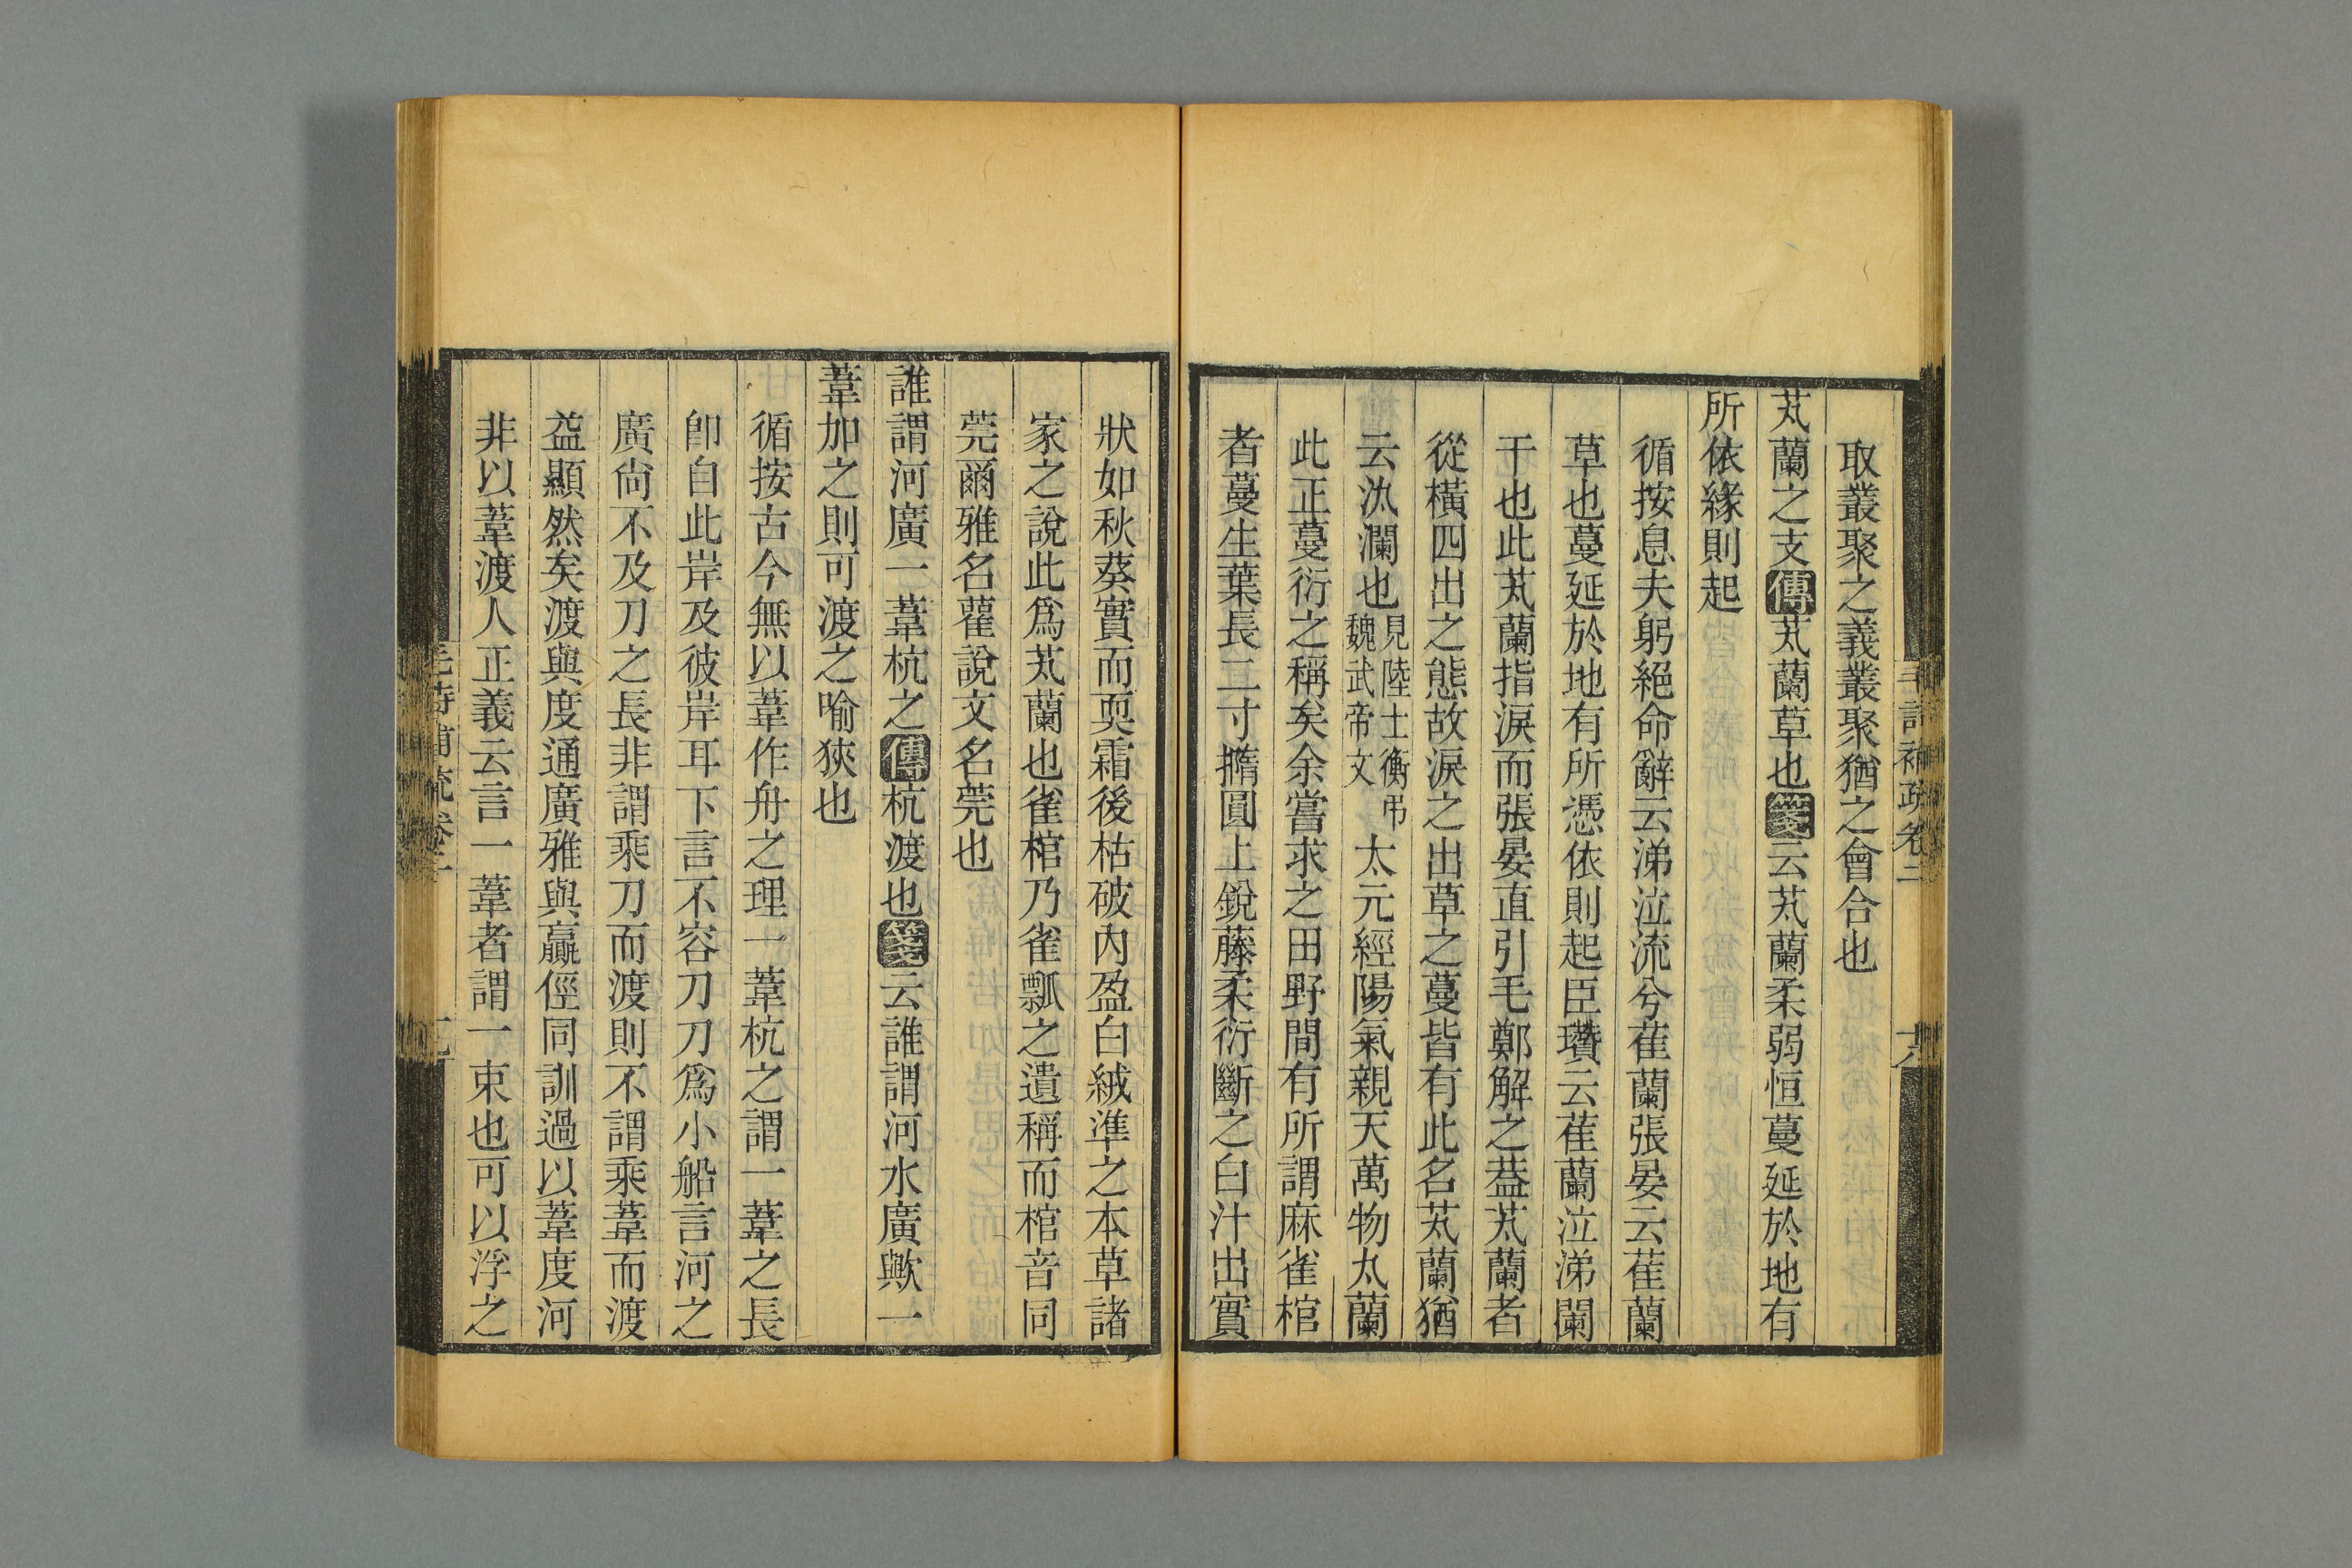 取叢聚之義叢聚猶之會合也
芄蘭之支傳芄蘭草也箋云芄蘭柔弱恒蔓延於地有
所依緣則起
循按息夫躬絕命辭云涕泣流兮萑蘭張晏云萑蘭
草也蔓延於地有所憑依則起臣瓚云萑蘭泣涕闌
干也此芄蘭指淚而張晏直引毛鄭解之葢芄蘭者
從橫四出之態故淚之出草之蔓皆有此名芄蘭猶
云汍瀾也見陸士衡弔魏武帝文太元經陽氣親天萬物𠁽蘭
此正蔓衍之稱矣余嘗求之田野間有所謂麻雀棺
者蔓生葉長二寸撱圓上銳藤柔衍斷之白汁出實
毛詩補疏卷二
十八
狀如秋葵實而耎霜後枯破內盈白絨準之本草諸
家之說此爲芄蘭也雀棺乃雀瓢之遺稱而棺音同
莞爾雅名雚說文名莞也
誰謂河廣一葦杭之傳杭渡也箋云誰謂河水廣歟一
葦加之則可渡之喻狹也
循按古今無以葦作舟之理一葦杭之謂一葦之長
卽自此岸及彼岸耳下言不容刀刀爲小船言河之
廣尙不及刀之長非謂乘刀而渡則不謂乘葦而渡
益顯然矣渡與度通廣雅與贏俓同訓過以葦度河
非以葦渡人正義云言一葦者謂一束也可以浮之
毛詩補疏卷二